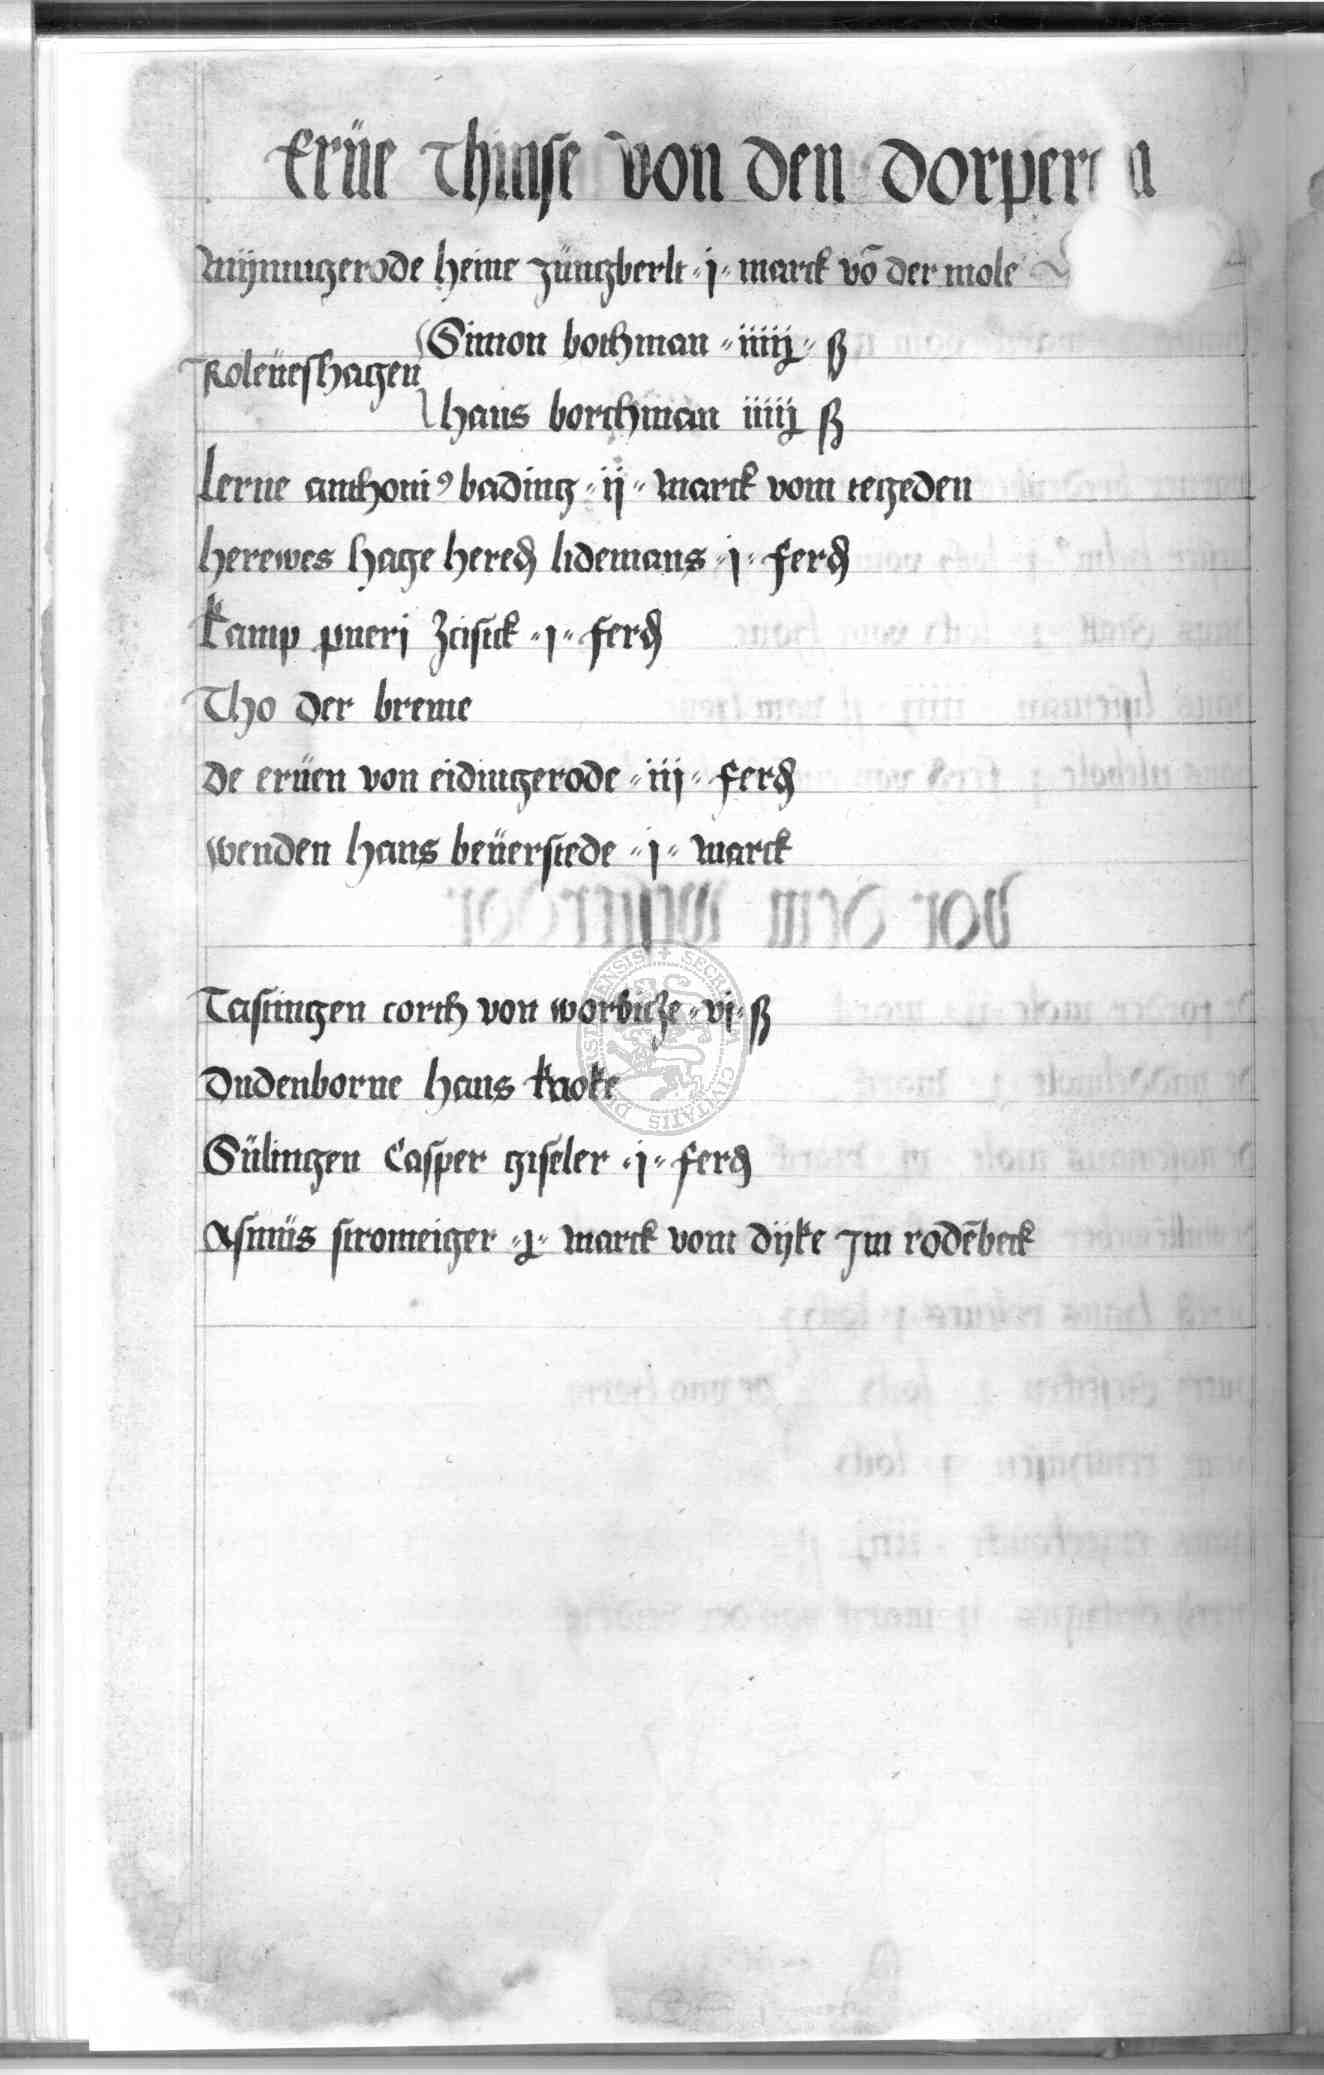 Erüe Thinse von den dorperen
Mijnnigerode heine Jüngberlt ·j· marck vō der mole
Simon bothman ·iiiij· ß
Roleüeshagen
hans borchman iiiij ß
Lerne anthoni9 bading ·ij· marck vom tegeden
herewes hage hered lidemans ·j· ferd
Kamp pueri Zcisick ·j· ferd
Tho der breme
de erüen von eidingerode ·iij· ferd
wenden hans beüerstede ·j· marck
Tastingen corth von worbicze ·vj· ß
Dudenborne hans knoke
Sülingen Casper giseler ·j· ferd
Asmüs stromeiger marck vom dijke Jm rodēbeck